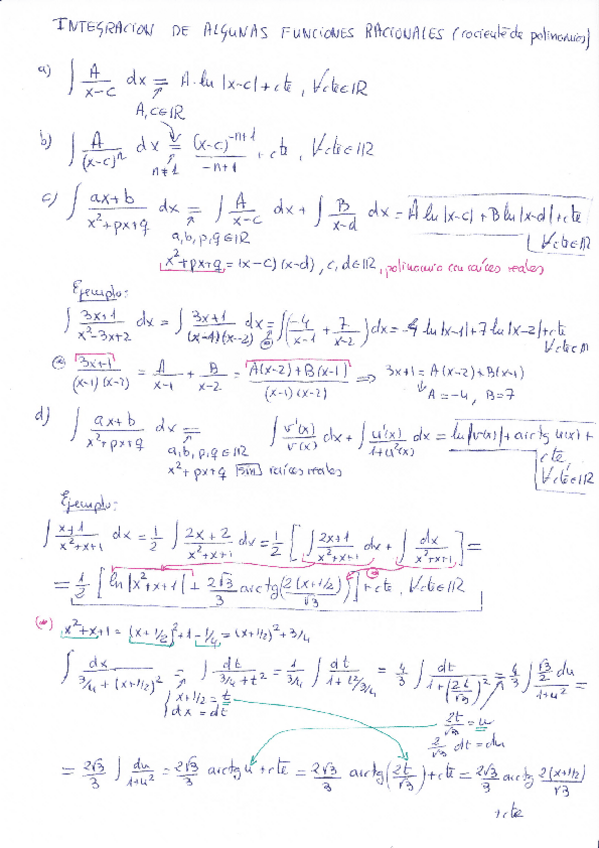 INTEGRACION DE ALGUNAS FUNCIONES RACIONALES (cociente de polinomios)
a) ∫ A/(x-c) dx = A·ln|x-c| + cte, ∀cte∈ℝ
A, c∈ℝ
b) ∫ A/(x-c)ⁿ dx = (x-c)^(-n+1)/(-n+1) + cte, ∀cte∈ℝ
n≠1
c) ∫ (ax+b)/(x²+px+q) dx = ∫ A/(x-c) dx + ∫ B/(x-d) dx = A ln|x-c| + B ln|x-d| + cte
a, b, p, q∈ℝ ∀cte∈ℝ
x²+px+q = (x-c)(x-d), c, d∈ℝ, polinomio con raíces reales
Ejemplo:
∫ (3x+1)/(x²-3x+2) dx = ∫ (3x+1)/((x-1)(x-2)) dx = ∫(-4/(x-1) + 7/(x-2)) dx = -4 ln|x-1| + 7 ln|x-2| + cte
∀cte∈ℝ
(*) (3x+1)/((x-1)(x-2)) = A/(x-1) + B/(x-2) = (A(x-2)+B(x-1))/((x-1)(x-2)) ⇒ 3x+1 = A(x-2)+B(x-1)
A=-4, B=7
d) ∫ (ax+b)/(x²+px+q) dx = ∫ v'(x)/v(x) dx + ∫ u'(x)/(1+u²(x)) dx = ln|v(x)| + arctg u(x) +
a, b, p, q∈ℝ cte,
x²+px+q sin raíces reales ∀cte∈ℝ
Ejemplo:
∫ (x+1)/(x²+x+1) dx = 1/2 ∫ (2x+2)/(x²+x+1) dx = 1/2 [∫ (2x+1)/(x²+x+1) dx + ∫ dx/(x²+x+1)] =
= 1/2 [ln|x²+x+1| + 2√3/3 arctg(2(x+1/2)/√3)] + cte, ∀cte∈ℝ
(*) x²+x+1 = (x+1/2)²+1-1/4 = (x+1/2)²+3/4
∫ dx/(3/4+(x+1/2)²) = ∫ dt/(3/4+t²) = 1/(3/4) ∫ dt/(1+t²/3/4) = 4/3 ∫ dt/(1+(2t/√3)²) = 4/3 ∫ (√3/2 du)/(1+u²) =
x+1/2 = t
dx = dt
2t/√3 = u
2/√3 dt = du
= 2√3/3 ∫ du/(1+u²) = 2√3/3 arctg u + cte = 2√3/3 arctg(2t/√3) + cte = 2√3/3 arctg 2(x+1/2)/√3
+cte